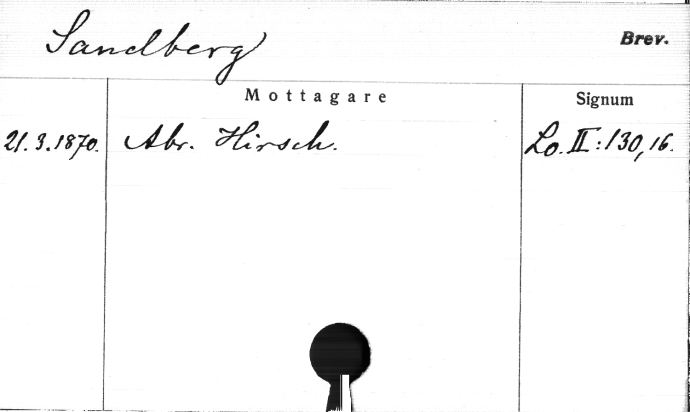 Sandberg
Brev.
Mottagare
Signum
21.3.1870. Abr. Hirsch. Lo. II:130,16.